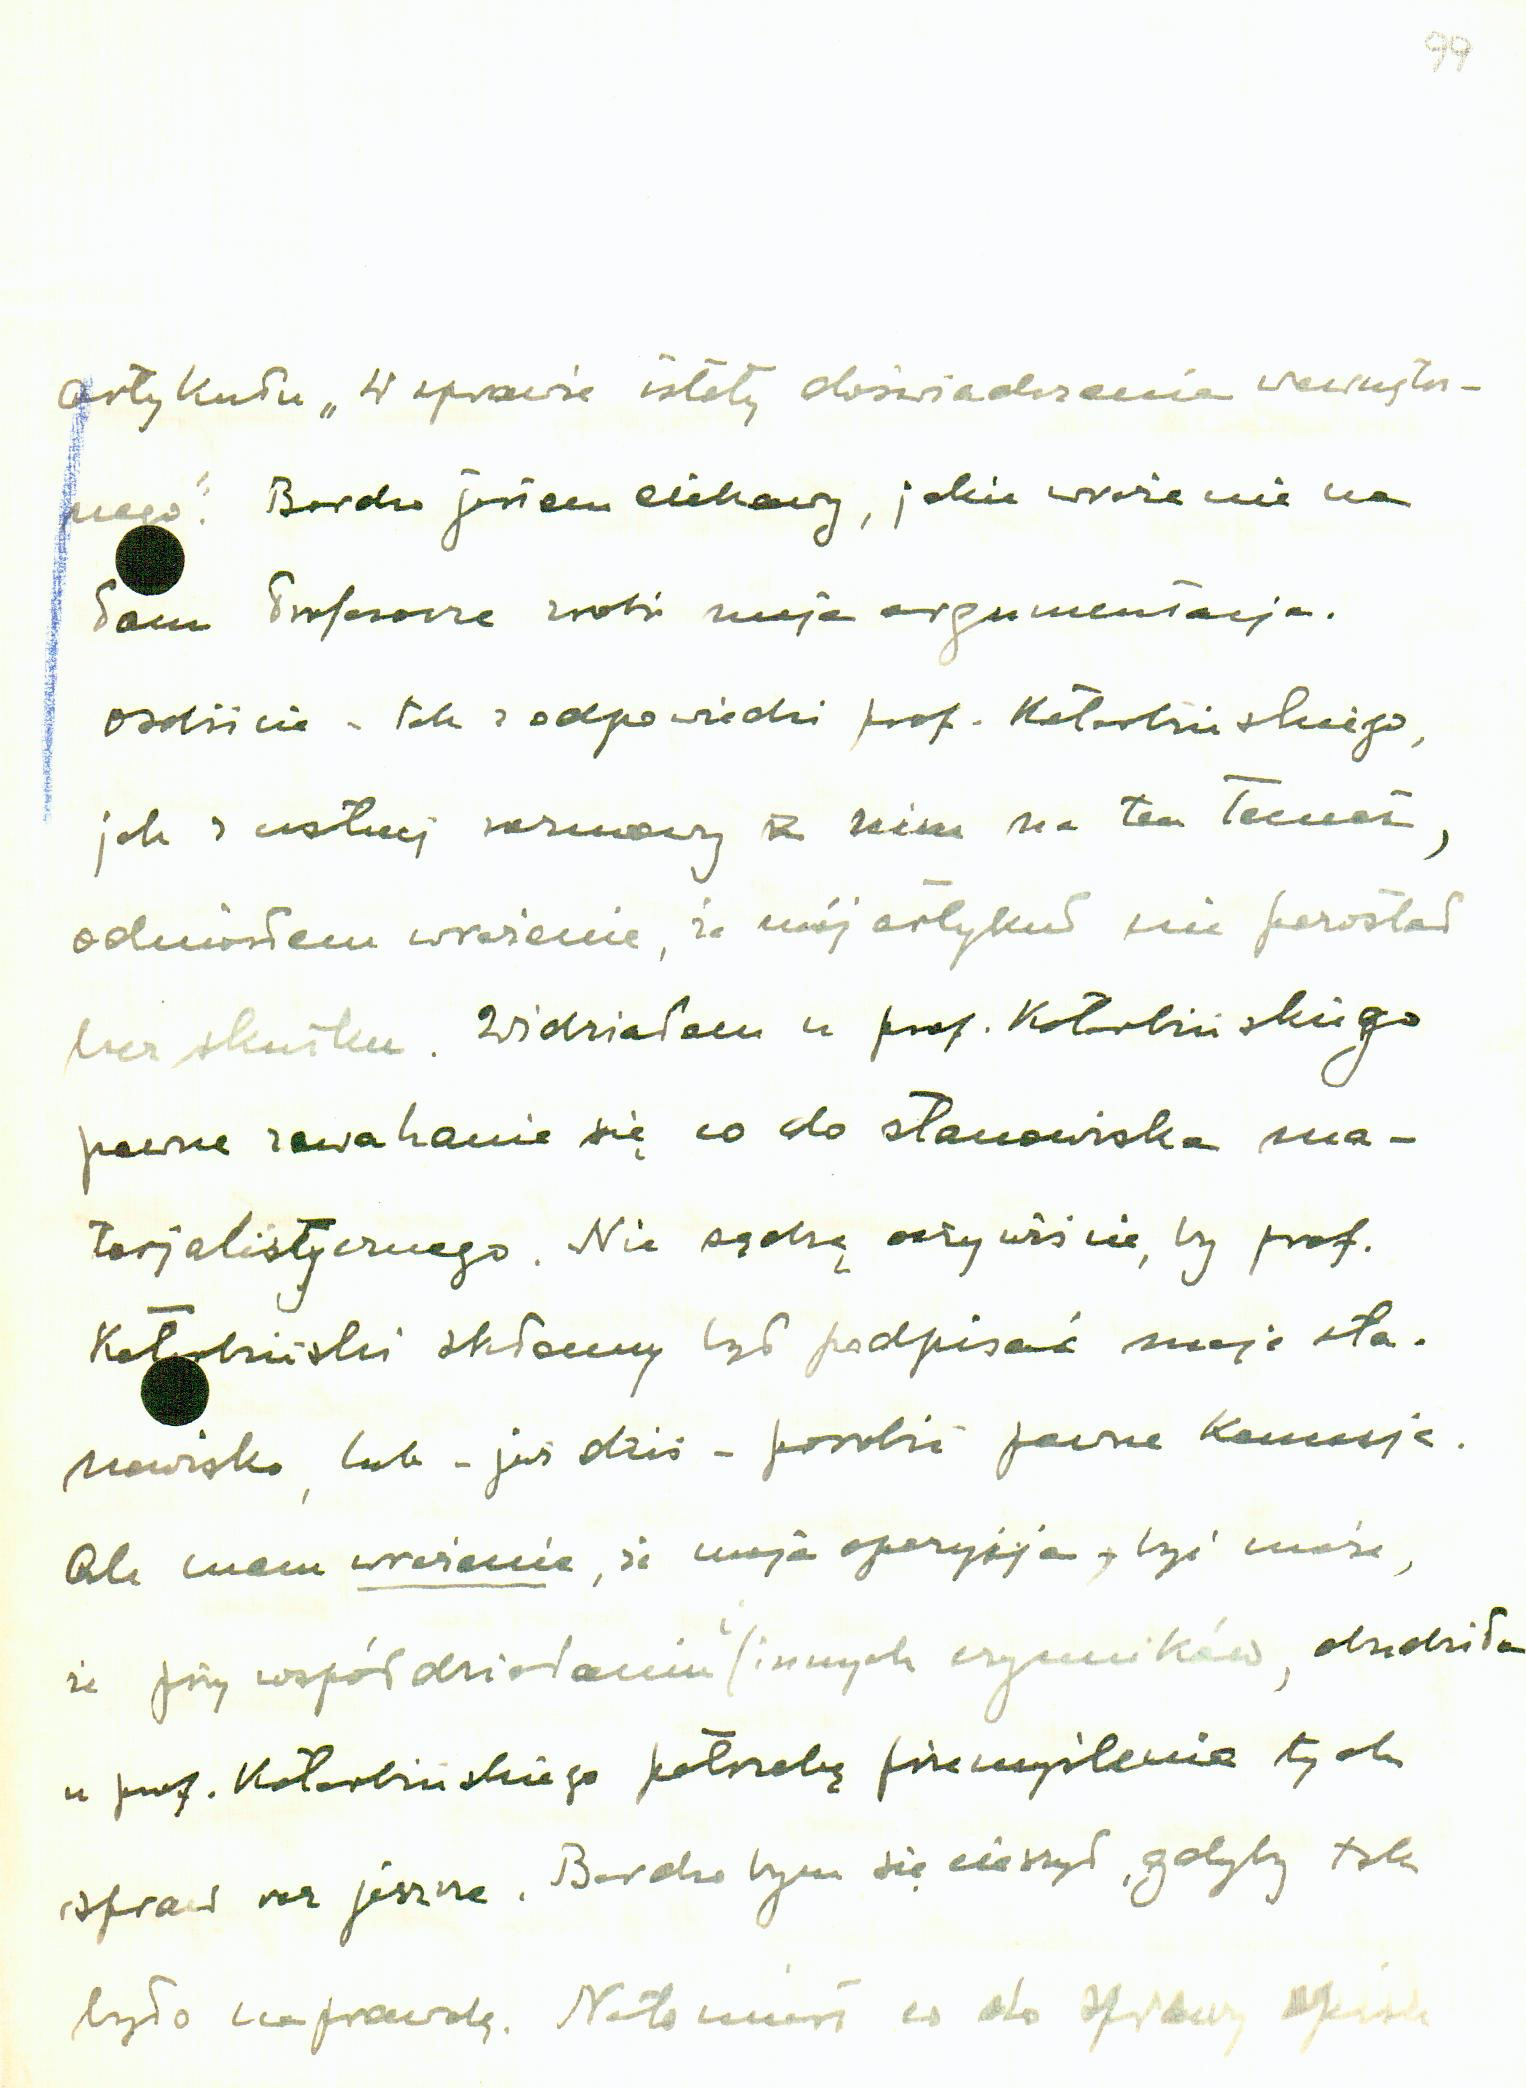 99
artykułu „W sprawie istoty doświadczenia wewnętrz-
nego". Bardzo jestem ciekawy, jakie wrażenie na
Panu Profesorze zrobi moja argumentacja.
Osobiście - tak z odpowiedzi prof. Kotarbińskiego,
jak z ustnej rozmowy z nim na ten temat,
odniosłem wrażenie, że mój artykuł nie pozostał
bez skutku. Widziałem u prof. Kotarbińskiego
pewne zawahanie się co do stanowiska ma-
terjalistycznego. Nie sądzę oczywiście, by prof.
Kotarbiński skłonny był podpisać moje sta-
nowisko, lub - już dziś - porobić pewne koncesje.
Ale mam wrażenie, że moja opozycja, być może,
że przy współdziałaniu i innych czynników, obudziła
u prof. Kotarbińskiego potrzebę przemyślenia tych
spraw raz jeszcze. Bardzo bym się cieszył, gdyby tak
było naprawdę. Natomiast co do sprawy